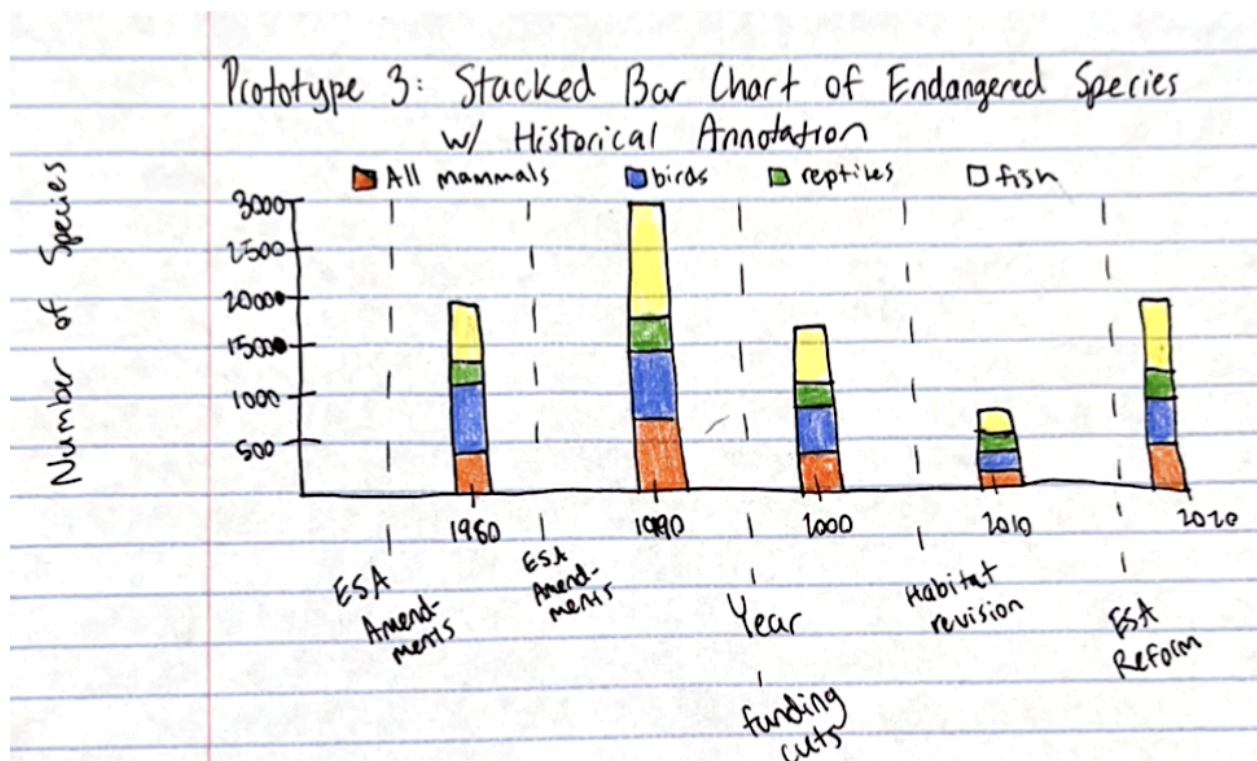 Prototype 3: Stacked Bar Chart of Endangered Species
w/ Historical Annotation
All mammals birds reptiles fish
Number of Species
3000
2500
2000
1500
1000
500
1980 1990 2000 2010 2020
ESA
Amend-
ments
ESA
Amend-
ments
Year
funding
cuts
Habitat
revision
ESA
Reform